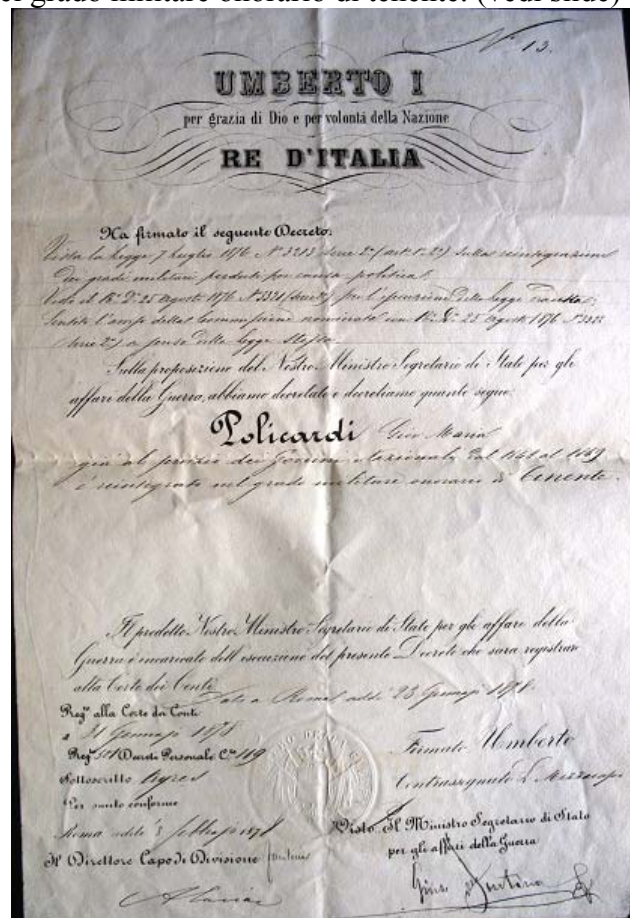 el grado militare onorario di tenente. (vedi slide)
N° 13.
UMBERTO I
per grazia di Dio e per volontà della Nazione
RE D'ITALIA
Ha firmato il seguente Decreto:
Vista la legge 7 luglio 1876 N° 3213 (serie 2ª) (art. 1° 2°) sulla reintegrazione
dei gradi militari perduti per causa politica;
Visto il R. D. 25 agosto 1876 N° (serie 2ª) per l'esecuzione della legge
Sentito della Commissione nominata con R. D. 25 agosto 1876
serie 2ª) a senso della legge stessa.
Sulla proposizione del Nostro Ministro Segretario di Stato per gli
affari della Guerra, abbiamo decretato e decretiamo quanto segue:
Policardi Gio Maria
già al servizio dei Nazionali dal al
è reintegrato nel grado militare onorario di Tenente.
Il predetto Nostro Ministro Segretario di Stato per gli affari della
Guerra è incaricato dell'esecuzione del presente Decreto che sarà registrato
alla Corte dei Conti.
Dato a Roma addì 23 1878.
Reg° alla Corte dei Conti
a 31 1878
Reg° Decreti Personale C^te 119
Sottoscritto Ayres
Per sunto conforme
Roma addì 1878
Il Direttore Capo di Divisione
Firmato Umberto
Contrassegnato L. Mezzacapo
Visto. Il Ministro Segretario di Stato
per gli affari della Guerra